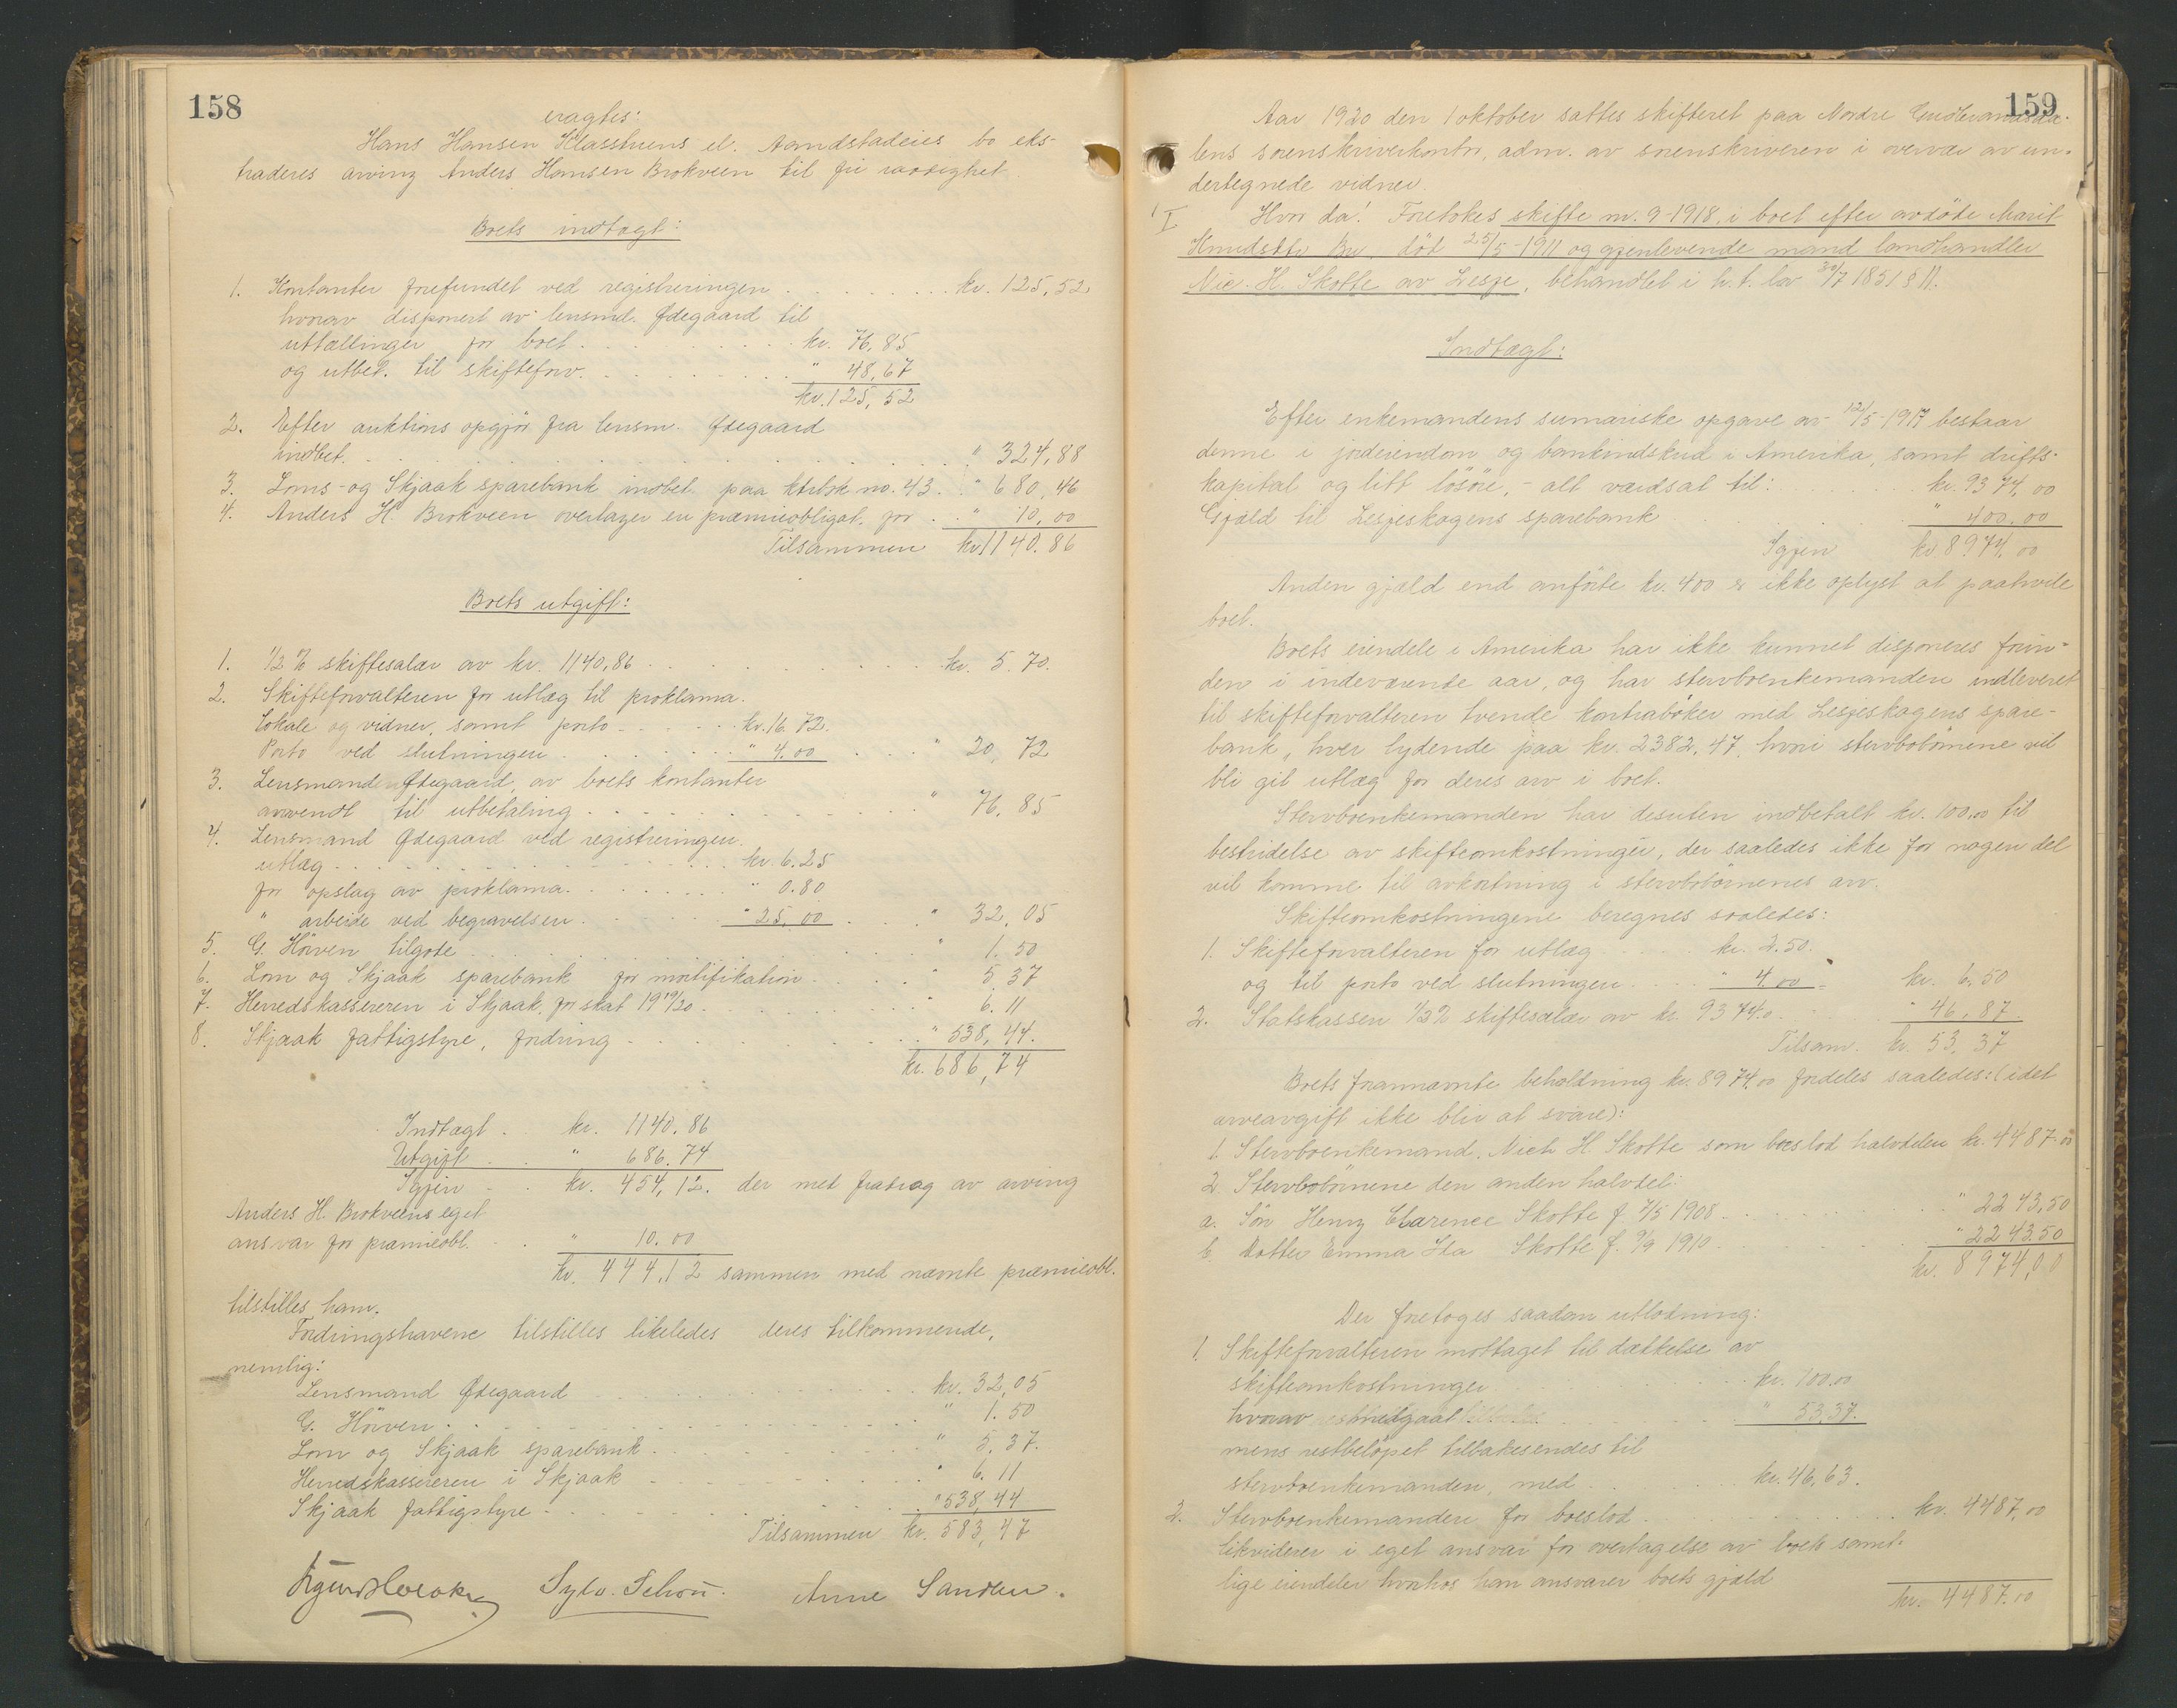 158
eragtes:
Hans Hansen Klasstuens el. Aamdstadeies bo eks-
traderes arving Anders Hansen Brokveen til fri raadighet.
Boets indtægt:
1. Kontanter forefundet ved registreringen kr. 125,52
hvorav disponert av lensmd. Ødegaard til
uttællinger for boet kr. 76,85
og utbet. til skifteforv. " 48,67
kr. 125,52
2. Efter auktions opgjør fra lensm. Ødegaard
indbet. " 324,88
3. Loms- og Skjaak sparebank indbet. paa ktrbok no. 43. " 680,46
4. Anders H. Brokveen overtager en præmieobligat. for " 10,00
Tilsammen kr. 1140.86
Boets utgift:
1. 1/2 % skiftesalær av kr. 1140,86 kr. 5.70.
2. Skifteforvalteren for utlæg til proklama.
Lokale og vidner, samt porto kr. 16.72.
Porto ved slutningen " 4.00 " 20,72
3. Lensmand Ødegaard, av boets kontanter
anvendt til utbetaling " 76,85
4. Lensmand Ødegaard ved registreringen
utlæg kr. 6.25
for opslag av proklama " 0.80
" arbeide ved begravelsen " 25,00 " 32,05
5. G. Höven tilgode " 1.50
6. Lom og Skjaak sparebank for mortifikation " 5.37
7. Herredskassereren i Skjaak, for skat 1919/20 " 6.11
8. Skjaak fattigstyre, fordring " 538,44.
kr. 686,74
Indtægt kr. 1140.86
Utgift " 686.74
Igjen kr. 454,12. der med fradrag av arving
Anders H. Brokveens eget
ansvar for præmieobl. " 10.00
kr. 444,12 sammen med nævnte præmieobl.
tilstilles ham.
Fordringshavene tilstilles likeledes deres tilkommende,
nemlig:
Lensmand Ødegaard kr. 32,05
G. Höven " 1.50
Lom og Skjaak sparebank " 5,37.
Herredskassereren i Skjaak " 6.11
Skjaak fattigstyre " 538,44
Tilsammen kr. 583,47
Sylv. Schou. Anne Sanden.
159
Aar 1920 den 1 oktober sattes skifteret paa Nordre Gudbrandsda-
lens sorenskriverkontor, adm. av sorenskriveren i overvær av un-
dertegnede vidner.
I Hvor da! Foretokes skifte nr. 9-1918 i boet efter avdöde Marit
Knudsdtr. Bu, död 25/5-1911 og gjenlevende mand landhandler
Nic. H. Skotte av Lesje, behandlet i h.t. lov 30/7 1851 § 11.
Indtægt:
Efter enkemandens sumariske opgave av 12/5-1917 bestaar
denne i jordeiendom og bankindskud i Amerika, samt drifts-
kapital og litt lösöre, - alt værdsat til: kr. 9374,00
Gjæld til Lesjeskogens sparebank " 400.00
Igjen kr 8974,00
Anden gjæld end anförte kr. 400 er ikke oplyst at paahvile
boet.
Boets eiendele i Amerika har ikke kunnet disponeres förin-
den i indeværende aar, og har stervboenkemanden indleveret
til skifteforvalteren tvende kontraböker med Lesjeskogens spare-
bank, hver lydende paa kr. 2382,47, hvori stervbobörnene vil
bli git utlæg for deres arv i boet.
Stervboenkemanden har desuten indbetalt kr. 100.00 til
bestridelse av skifteomkostninger, der saaledes ikke for nogen del
vil komme til avkortning i stervbobörnenes arv.
Skifteomkostningene beregnes saaledes:
1. Skifteforvalteren for utlæg kr. 2.50.
og til porto ved slutningen " 4.00 kr. 6,50
2. Statskassen 1/2 % skiftesalær av kr. 9374.0 " 46,87.
Tilsam. kr. 53,37
Boets frannævnte beholdning kr. 8974.00 fordeles saaledes: (idet
arveavgift ikke blir at svare):
1. Stervboenkemand. Nich H. Skotte som boeslod halvdelen kr. 4487.00
2. Stervbobörnene den anden halvdel:
a. Sön Henry Clarence Skotte f. 7/5 1908 " 2243,50
b. Datter Emma Ida Skotte f. 9/9 1910 " 2243.50
kr. 8974,00
Der foretoges saadan utlodning:
1. Skifteforvalteren mottaget til dækkelse av
skifteomkostninger kr. 100.00
hvorav medgaat " 53,37.
mens restbelöpet tilbakesendes til
stervboenkemanden, med kr. 46,63.
2. Stervboenkemanden for boeslod kr. 4487,00
likviderer i eget ansvar for overtagelse av boets samt-
lige eiendeler hvorhos han ansvarer boets gjæld
kr. 4487.00